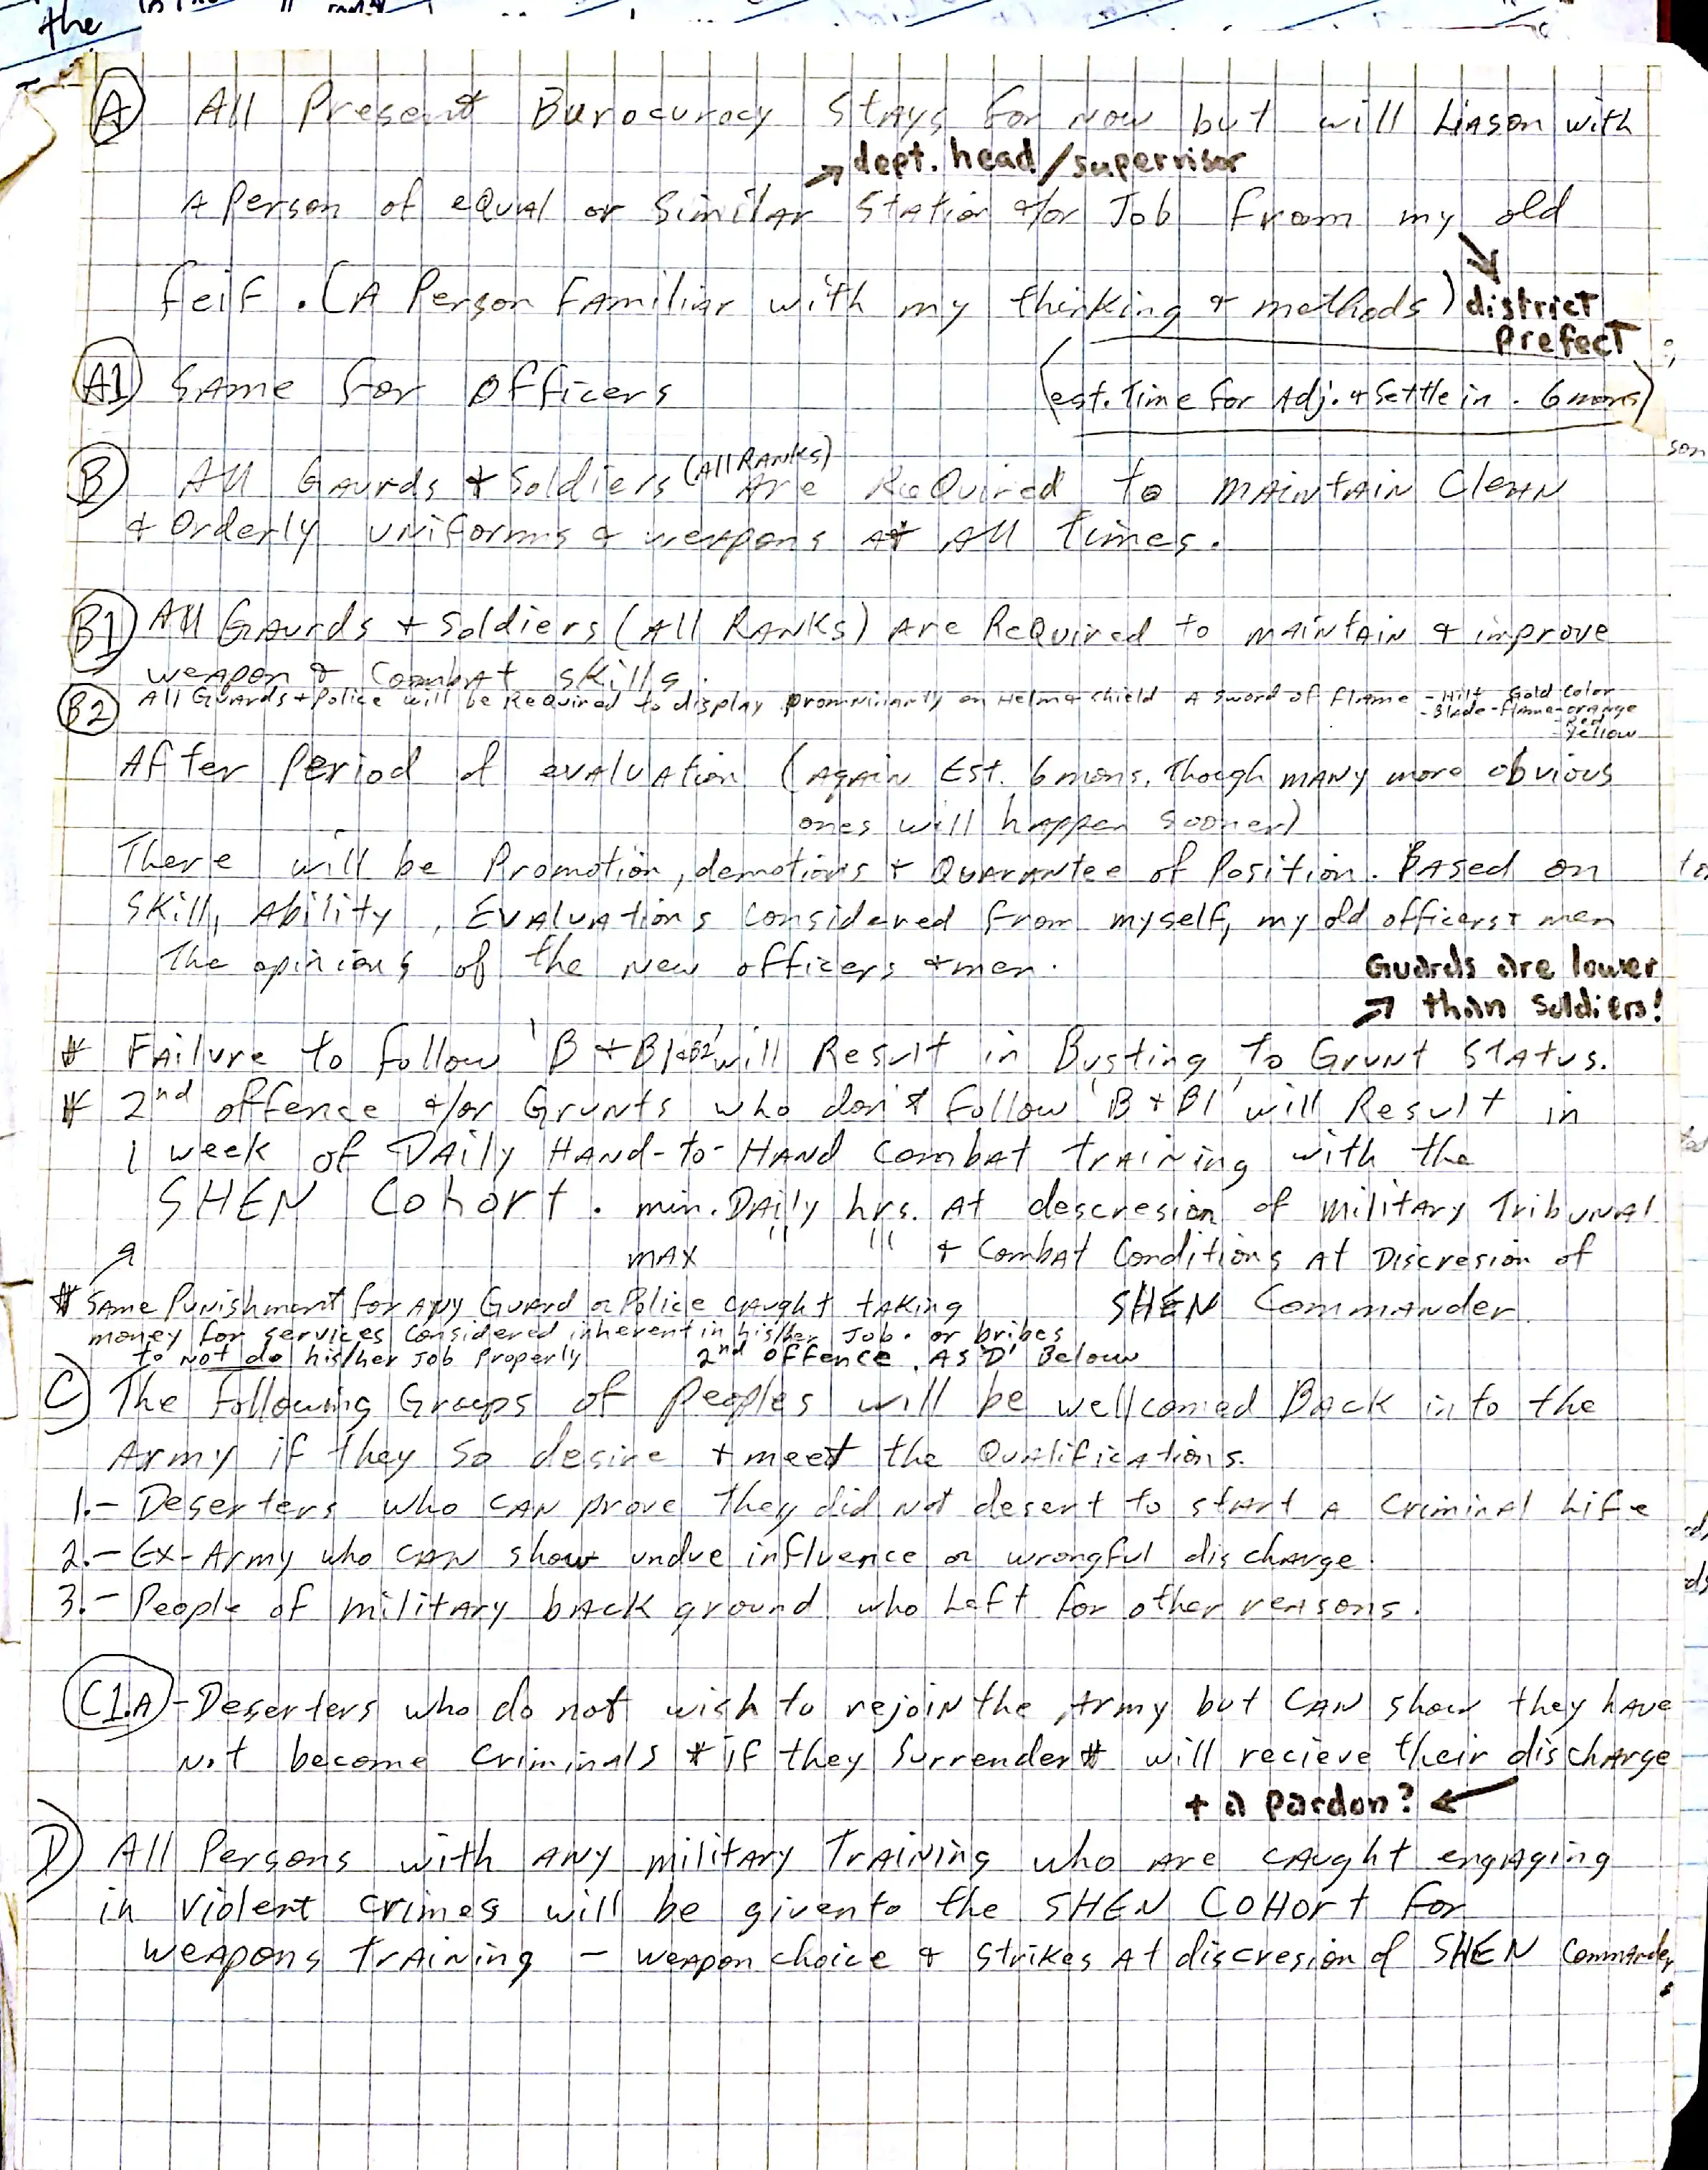 the
(A) All Present Burocuracy stays for now but will Liason with
→ dept. head/supervisor
A Person of equal or Similar Station &/or Job from my old
feif. (A Person Familiar with my thinking & methods) district
prefect
(A1) Same for Officers (est. Time for Adj. & Settle in . 6 mons)
(B) All Gaurds & Soldiers (All Ranks) Are Required to maintain Clean
& Orderly uniforms & weapons At All times.
(B1) All Gaurds & Soldiers (All Ranks) Are Required to maintain & improve
weapon & Combat skills.
(B2) All Guards & Police will be Required to display prominantly on Helm & shield A Sword of flame - Hilt Gold Color
- Blade - Flame - orange
- Red
- Yellow
After Period of evaluation (Again Est. 6 mons. Though many more obvious
ones will happen sooner)
There will be Promotion, demotions & Quarantee of Position. Based on
Skill, Ability, Evaluations Considered from myself, my old officers & men
The opinions of the new officers & men.
Guards are lower
→ than soldiers!
* Failure to follow 'B + B1 & B2' will Result in Busting to Grunt Status.
* 2nd offence &/or Grunts who don't follow 'B + B1' will Result in
1 week of Daily Hand-to-Hand Combat training with the
SHEN Cohort. min. Daily hrs. At descresion of military Tribunal
max " " & Combat Conditions At Discresion of
SHEN Commander.
* Same Punishment for Any Guard or Police caught taking
money for services considered inherent in his/her Job. or bribes
to not do his/her Job Properly 2nd offence. As 'D' Below
C) The following Groups of Peoples will be wellcomed Back into the
Army if they so desire & meet the Qualifications.
1.- Deserters who can prove they did not desert to start a criminal Life
2.- Ex-Army who can show undue influence or wrongful discharge.
3.- People of military back ground who Left for other reasons.
(C1.A) - Deserters who do not wish to rejoin the Army but can show they have
not become criminals * if they Surrender * will recieve their discharge
+ a pardon? ←
D) All Persons with any military Training who are caught engaging
in violent crimes will be given to the SHEN COHort for
weapons training - weapon choice & strikes At discresion of SHEN Commander.